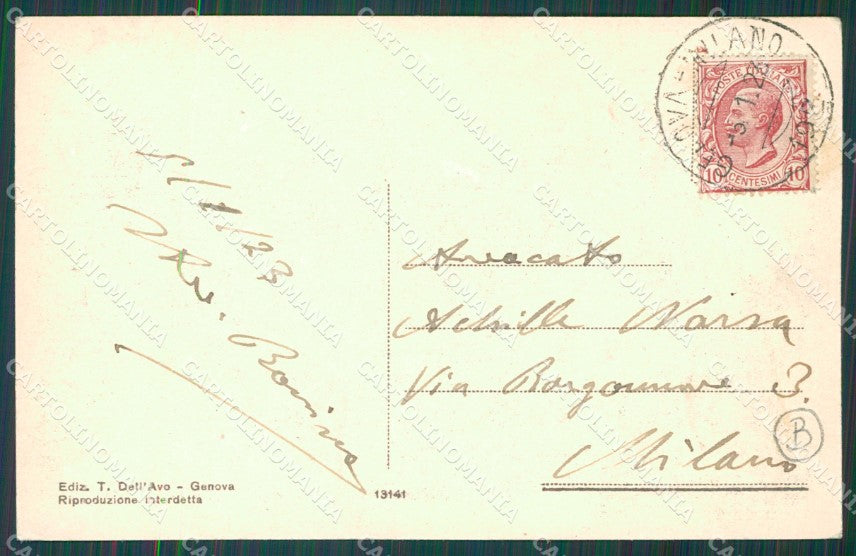 5/1/23
Avv. Bonina
Avvocato
Achille Norsa
Via Borgonuovo 3.
Milano
B
POSTE ITALIANE
10 CENTESIMI 10
MILANO
-5.1.23
Ediz. T. Dell'Avo - Genova
Riproduzione interdetta
13141
CARTOLINOMANIA